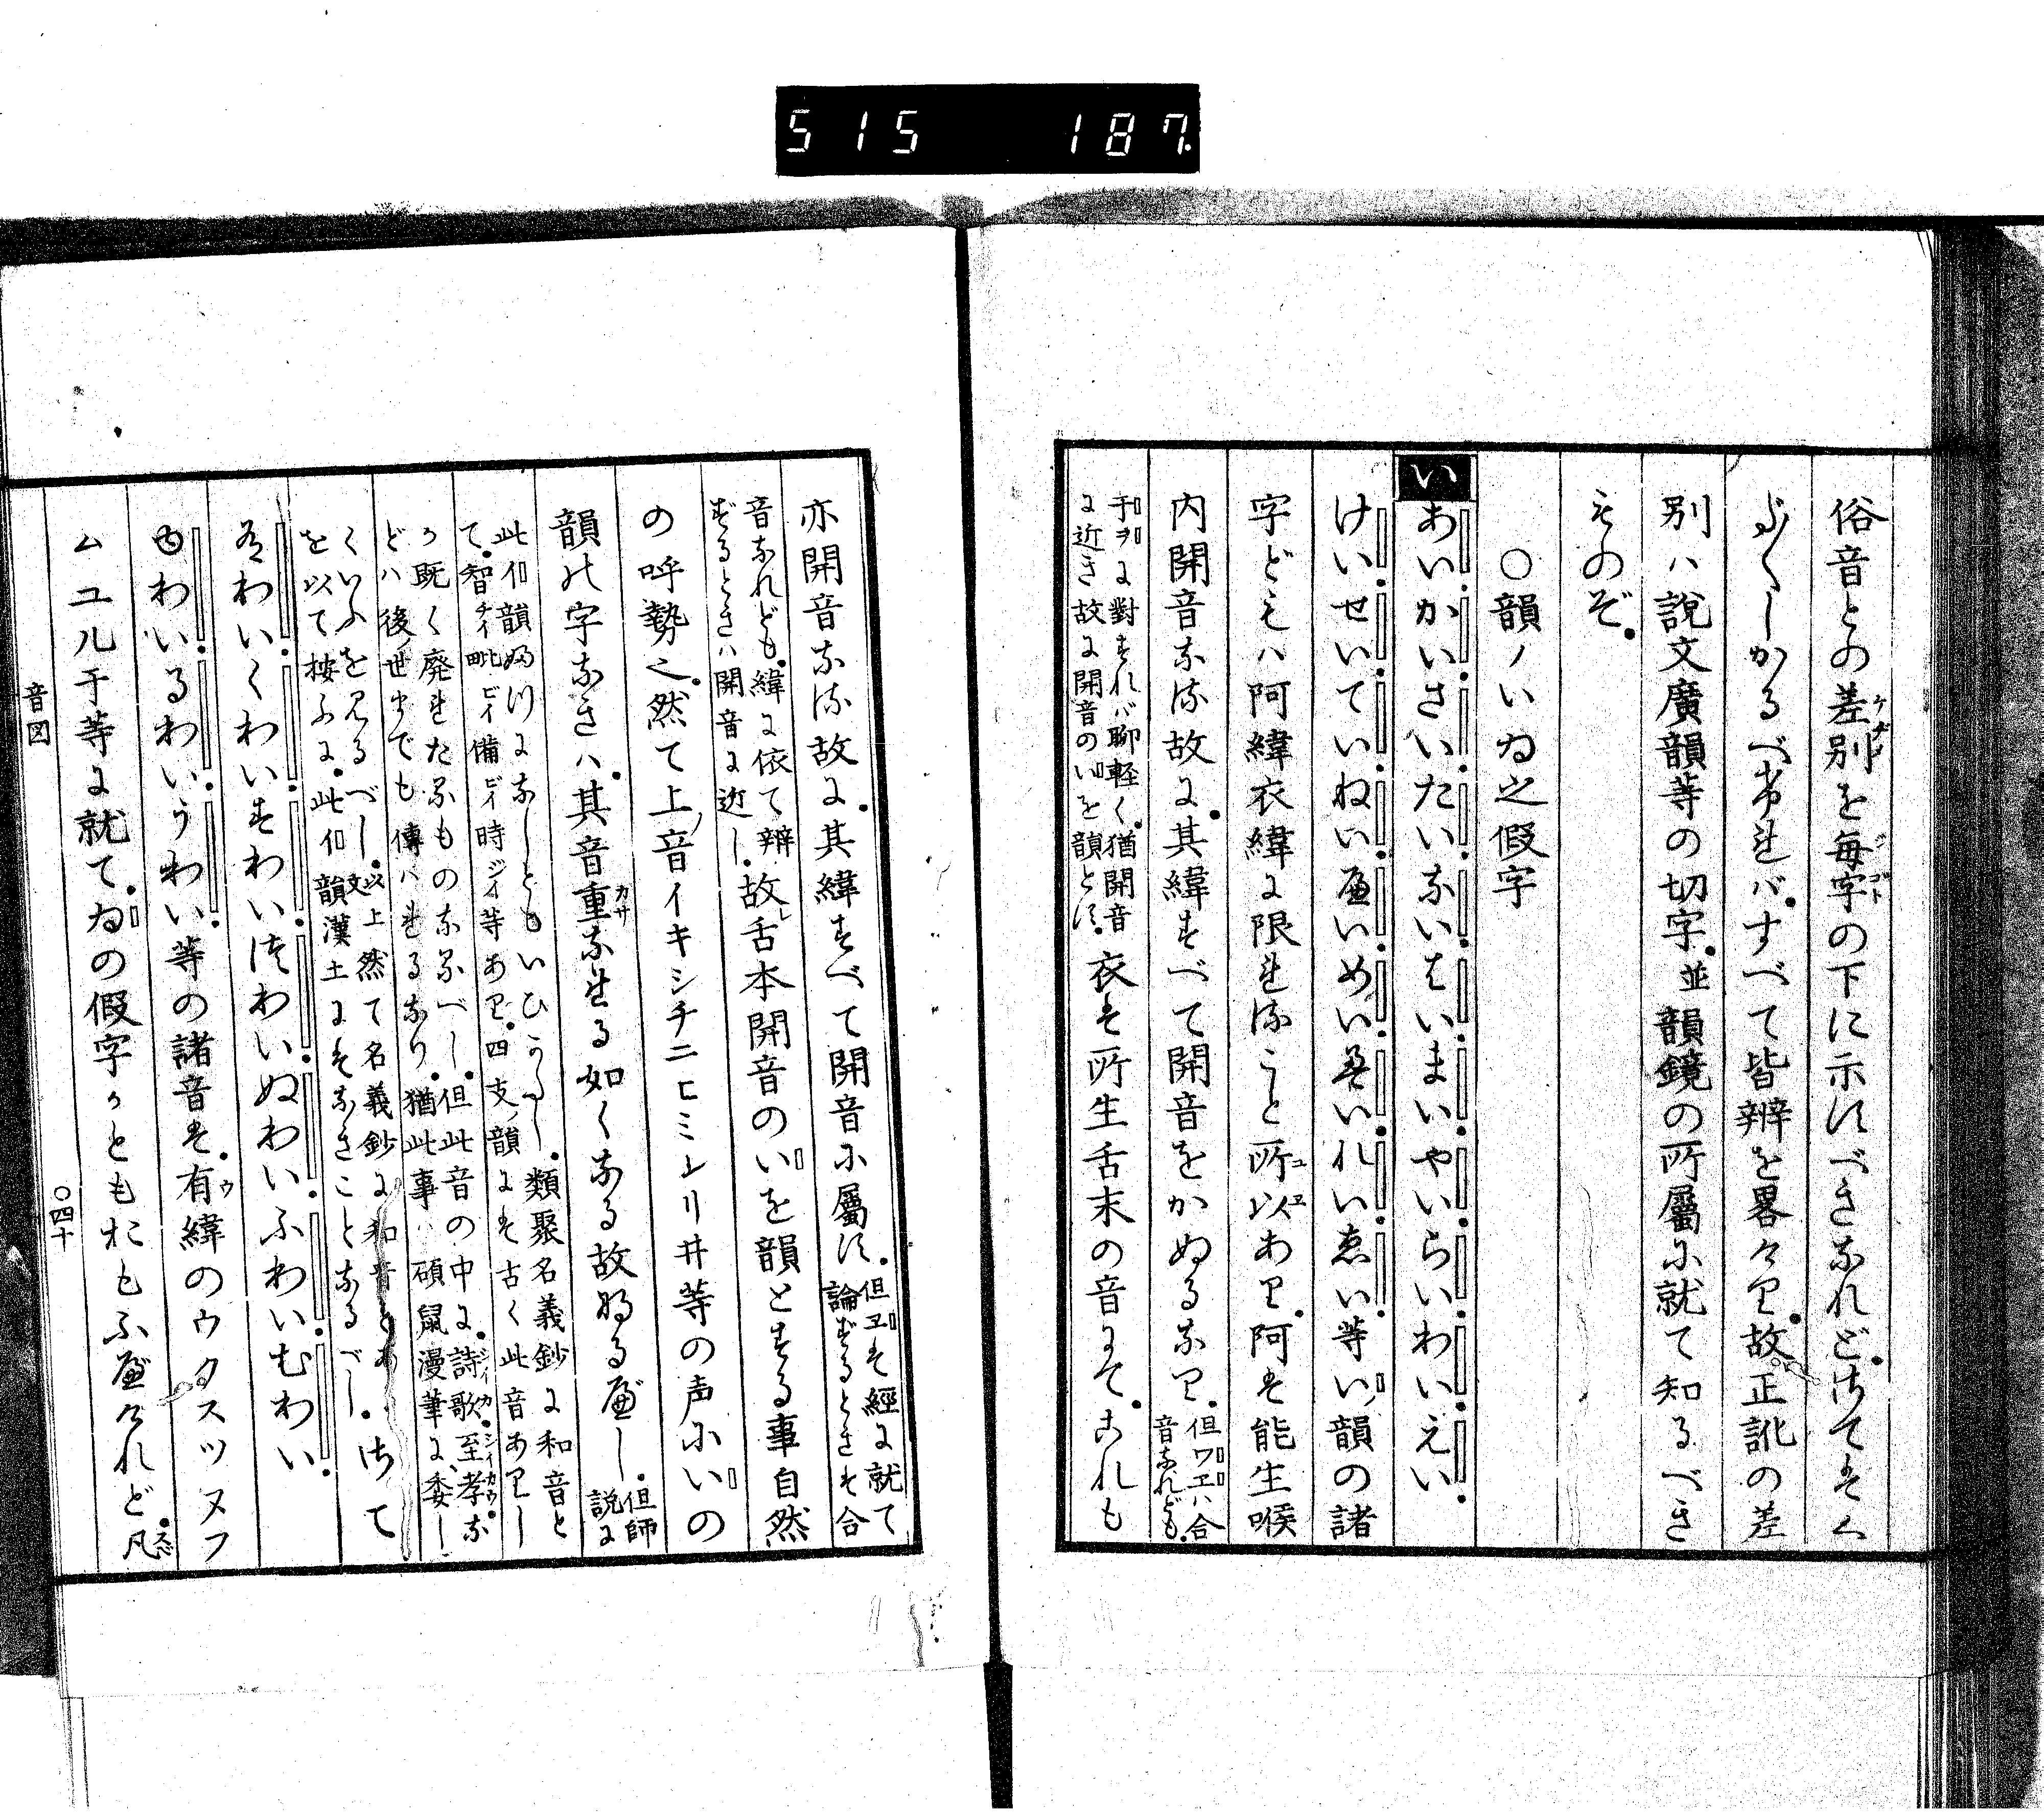 515 187
俗音との差別を毎字の下に示すべきなれどさてはく
だくしかるべければすべて皆辨を畧けり故正訛の差
別ハ説文廣韻等の切字並韻鏡の所屬に就て知るべき
ものぞ
〇韻ノいゐ之假字
い
あいかいさいたいないはいまいやいらいわいえい
けいせいていねいへいめいえいれいゑい等い韻の諸
字どもハ阿緯衣緯に限れること所以あり阿は能生喉
内開音なる故に其緯すべて開音をかぬるなり
但ワヱハ合
音なれども
于ヲに對すれバ聊軽く猶開音
に近き故に開音のいを韻とす
衣は所生舌末の音にてこれも
亦開音なる故に其緯すべて開音に屬す
但ヱは經に就て
論ずるときは合
音なれども緯に依て辨
ずるときハ開音に近し
故舌本開音のいを韻とする事自然
の呼勢也然て上音イキシチニヒミレリヰ等の声にいの
韻の字なきハ其音重なれる如くなる故なるべし
但師
説に
此イ韻
なしともいひ
類聚名義鈔に和音と
て智チイ毗ビイ備ビイ時ジイ等あり四支ノ韻には古く此音あり
既く廃れたるものなるべし但此音の中に詩歌シイカ至孝シイカウな
どハ後世までも傳ハれるなり猶此事ハ碩鼠漫筆に委し
くいふを見るべし以上文然て名義鈔に和音とあ
を以て按ふに此イ韻漢土にはなきことなるべし
さて
わいくわいすわいつわいぬわいふわいむわい
ゆわいるわいうわい等の諸音は有緯のウクスツヌフ
ムユル于等に就てゐの假字かともおもふべけれど凡
音図
〇四十